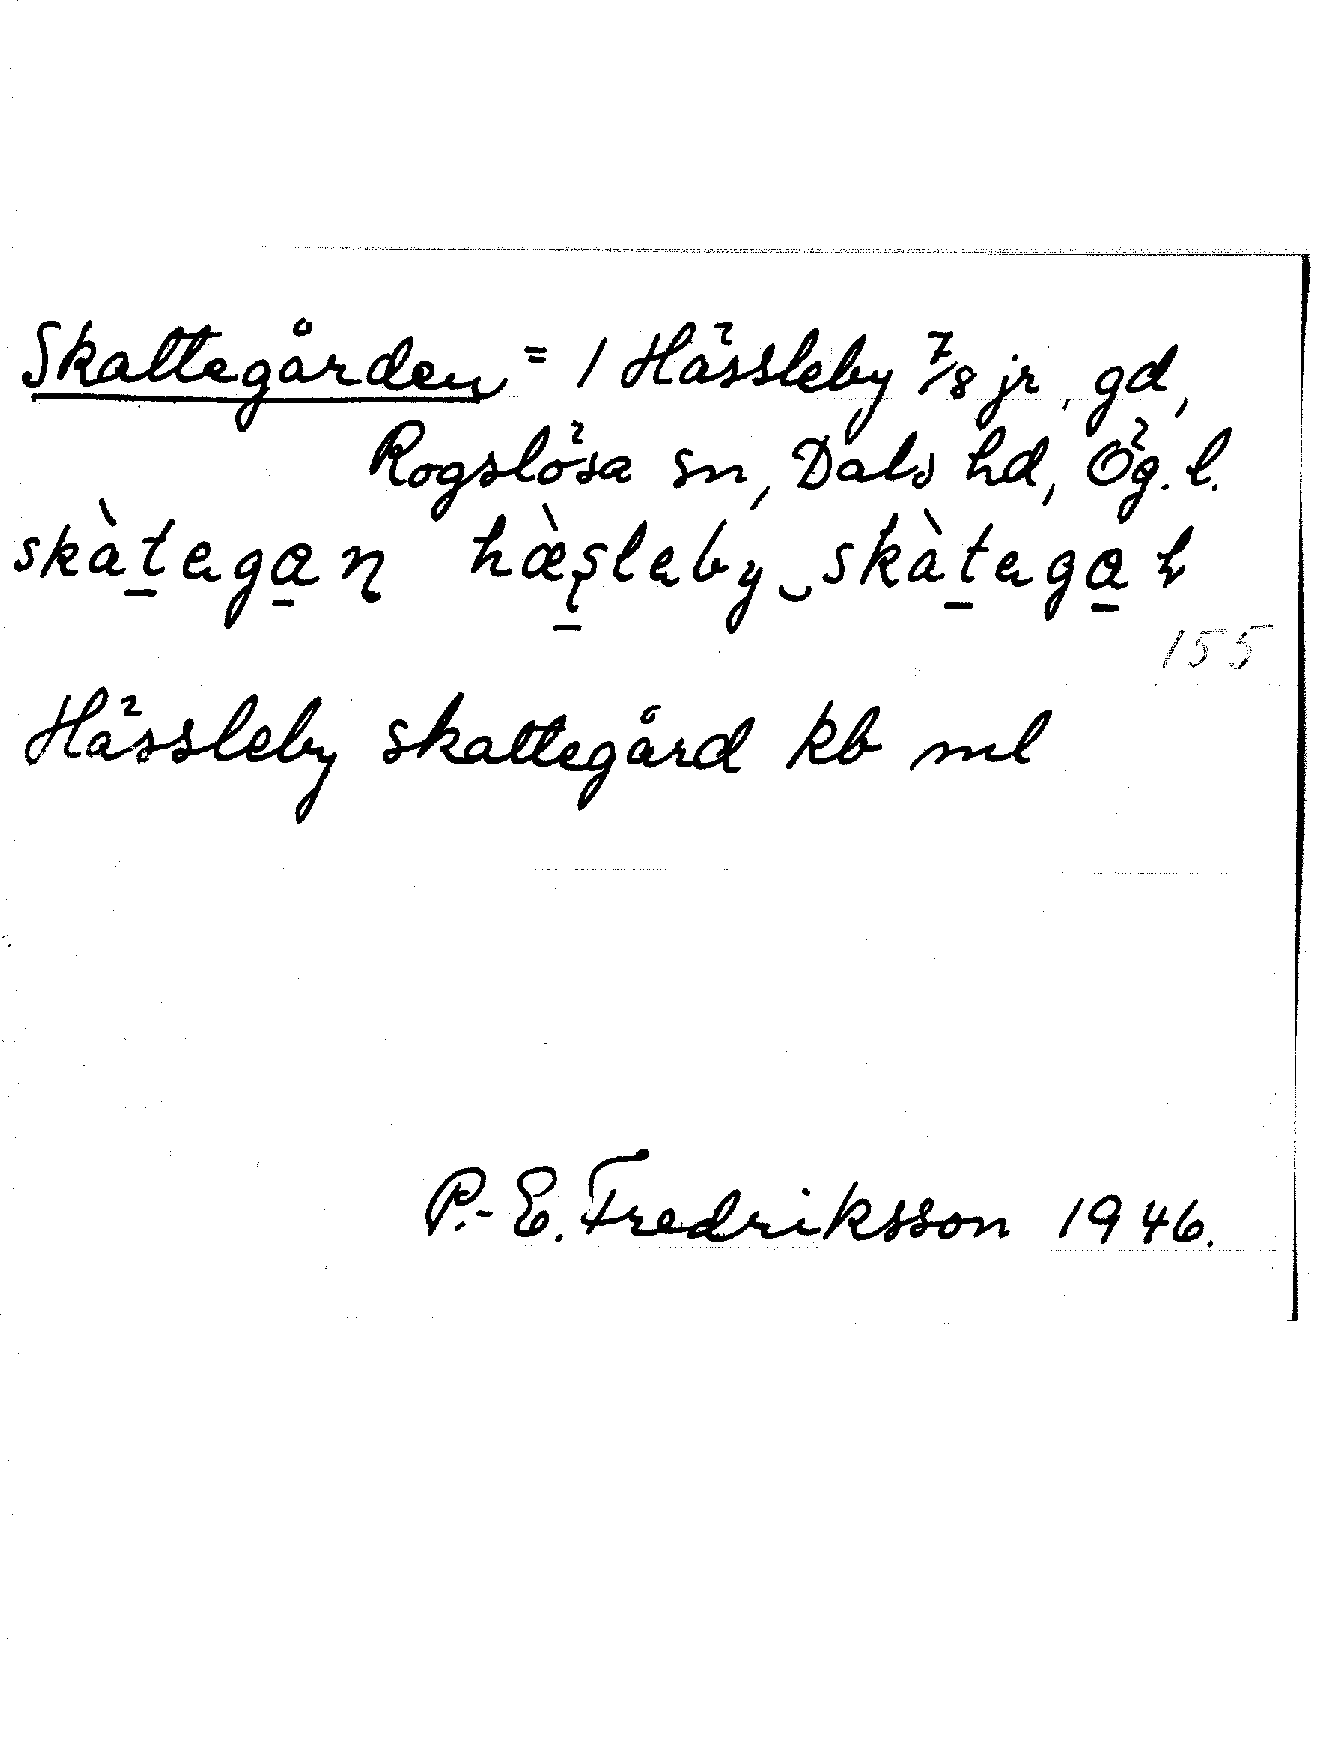 Skattegården = 1 Hässleby 7/8 jr, gd,
Rogslösa sn, Dals hd, Ög. l.
skàtegan hæ̀sleby‿skàtega
155
Hässleby skattegård kb ml
P.-E. Fredriksson 1946.